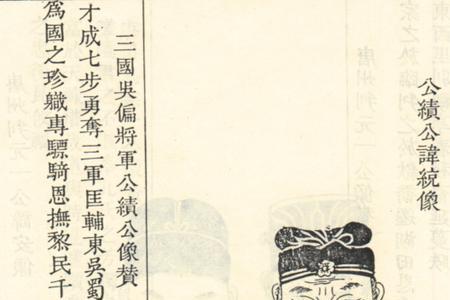 公績公諱統像
三國吳偏將軍公績公像贊
才成七步勇奪三軍匡輔東吳蜀
為國之珍職專驃騎恩撫黎民千